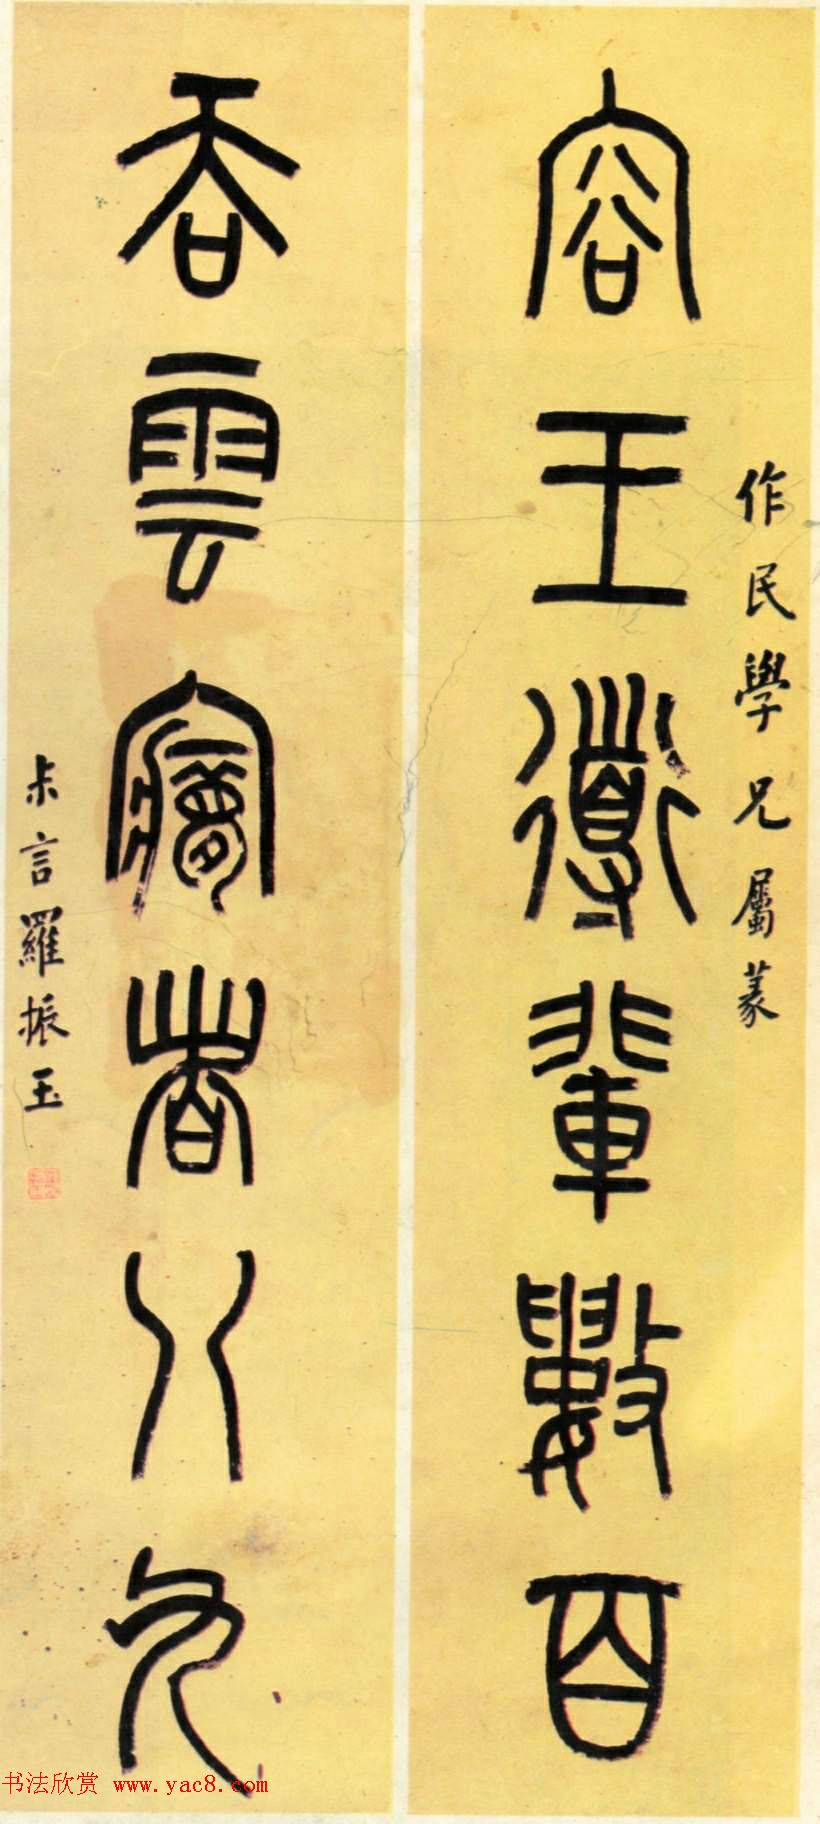 作民學兄屬篆
容王導輩數百
吞雲夢者八九
尗言羅振玉
书法欣赏 www.yac8.com